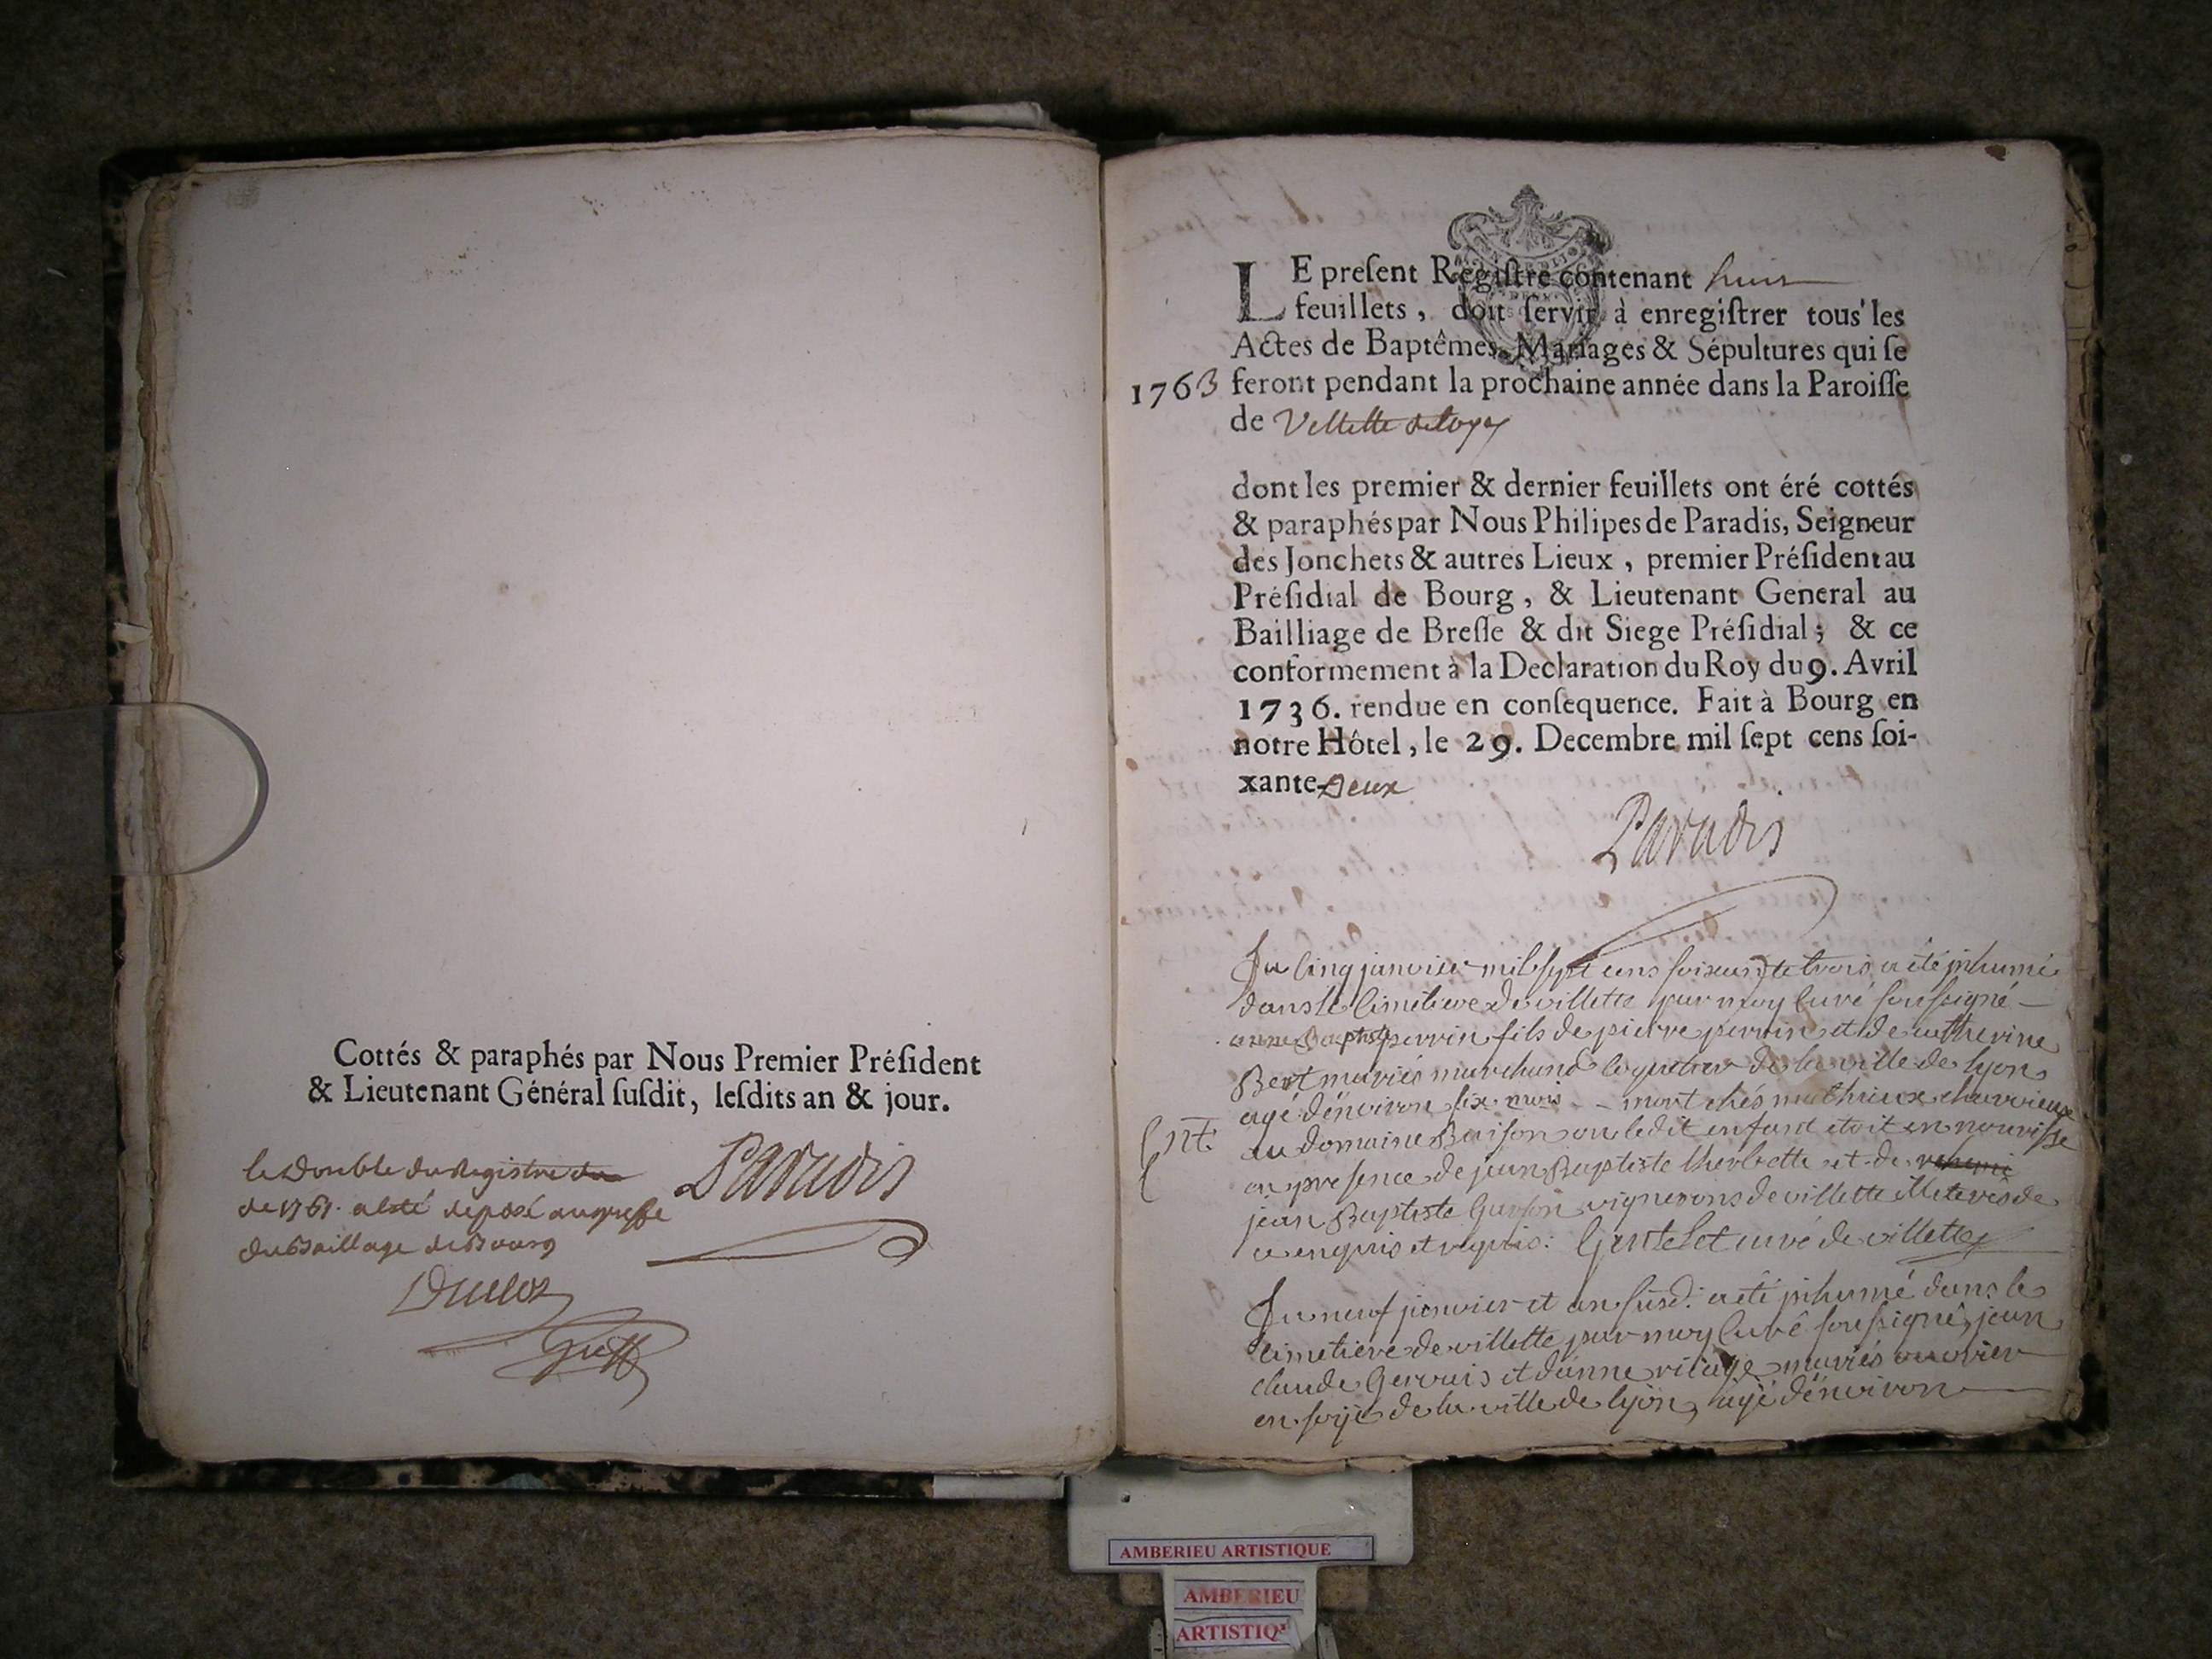 Cottés & paraphés par Nous Premier Préſident
& Lieutenant Général ſuſdit, leſdits an & jour.
le Double du Registre du
de 1761. a esté deposé au greffe
du Baillage de Bourg
Paradis
Duclos
Greff
LE preſent Regiſtre contenant huit
feuillets, doit ſervir à enregiſtrer tous les
Actes de Baptêmes, Mariages & Sépultures qui ſe
1763 feront pendant la prochaine année dans la Paroiſſe
de Villette de loyes
dont les premier & dernier feuillets ont éré cottés
& paraphés par Nous Philipes de Paradis, Seigneur
des Jonchets & autres Lieux, premier Préſident au
Préſidial de Bourg, & Lieutenant General au
Bailliage de Breſſe & dit Siege Préſidial; & ce
conformement à la Declaration du Roy du 9. Avril
1736. rendue en conſequence. Fait à Bourg en
notre Hôtel, le 29. Decembre mil ſept cens ſoi-
xante-Deux
Paradis
Du Cinq janvier mil sept cens soixante trois a été inhumé
dans le Cimetiere de villette par moy Curé soussigné
perrin fils de pierre perrin et de catherine
Bert mariés marchand de la ville de lyon
agé d'énviron six mois mort chés mathieux
Ent. au Domaine Buison ou ledit enfant etoit en nourisse
en presence de jean Baptiste therbette et de
jean Baptiste vignerons de villette illeterés de
ce enquis et requis: Gentelet curé de villette
Du neuf janvier et an susd. a été inhumé dans le
Cimetiere de villette par moy Curé soussigné jean
claude Gervais et d'anne mariés ouvrier
en soye de la ville de lyon, agé d'énviron
AMBERIEU ARTISTIQUE
AMBERIEU
ARTISTIQ